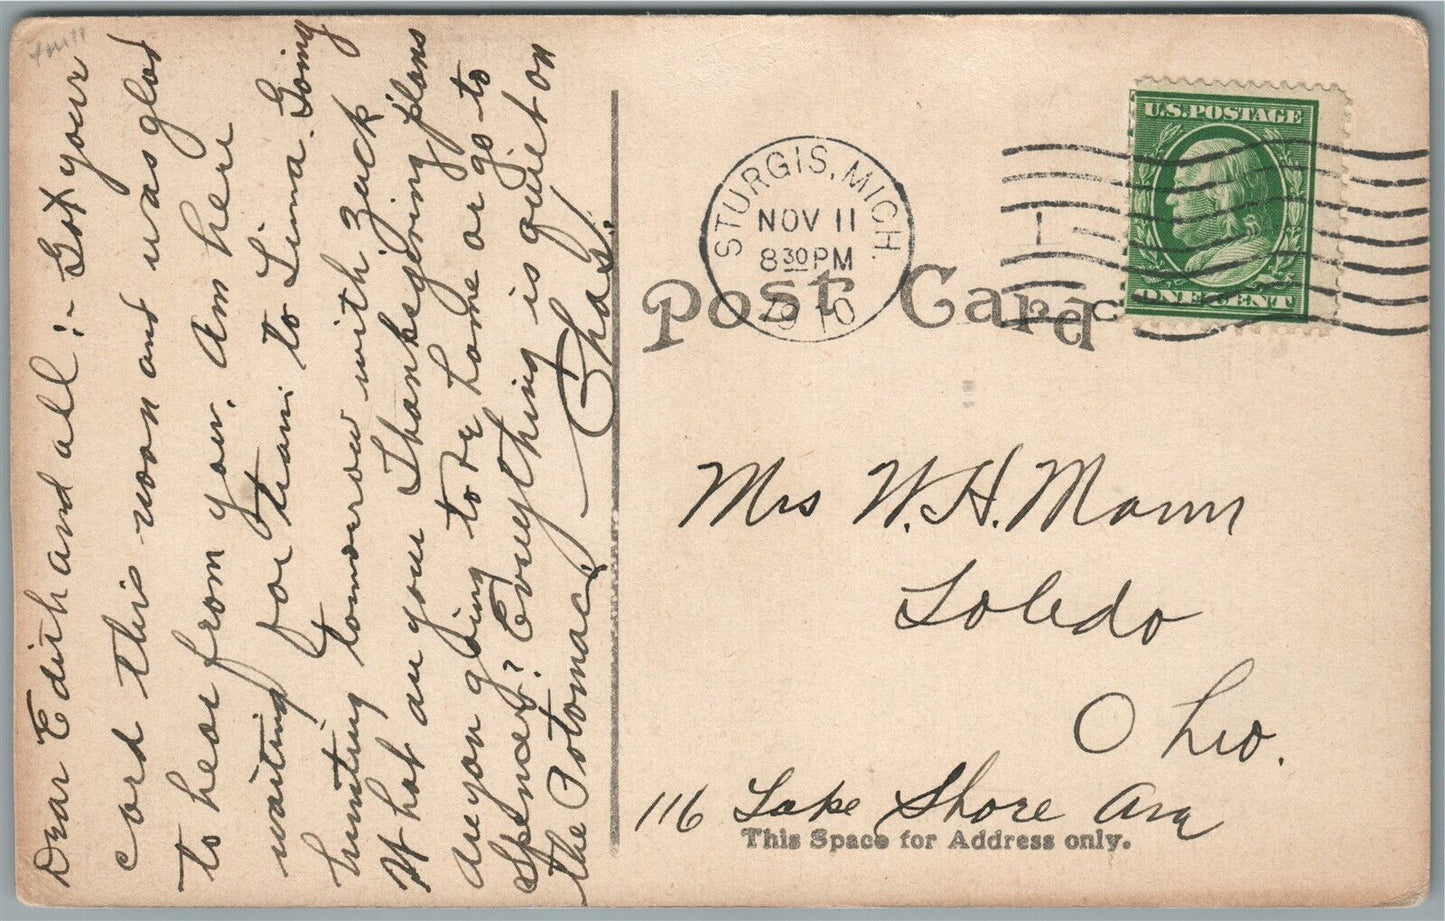 Dear Edith and all:- Got your
card this noon and was glad
to hear from you. Am here
waiting for train to Lima. Going
hunting tomorrow with Zack
What are your Thanksgiving plans
Are you going to be home or go to
Spencer? Everything is quiet on
the Potomac.
Chas.
STURGIS, MICH.
NOV 11
8 30 PM
1910
U.S. POSTAGE
ONE CENT
Post Card
Mrs W. H. Mann
Toledo
Ohio.
116 Lake Shore Ave
This Space for Address only.